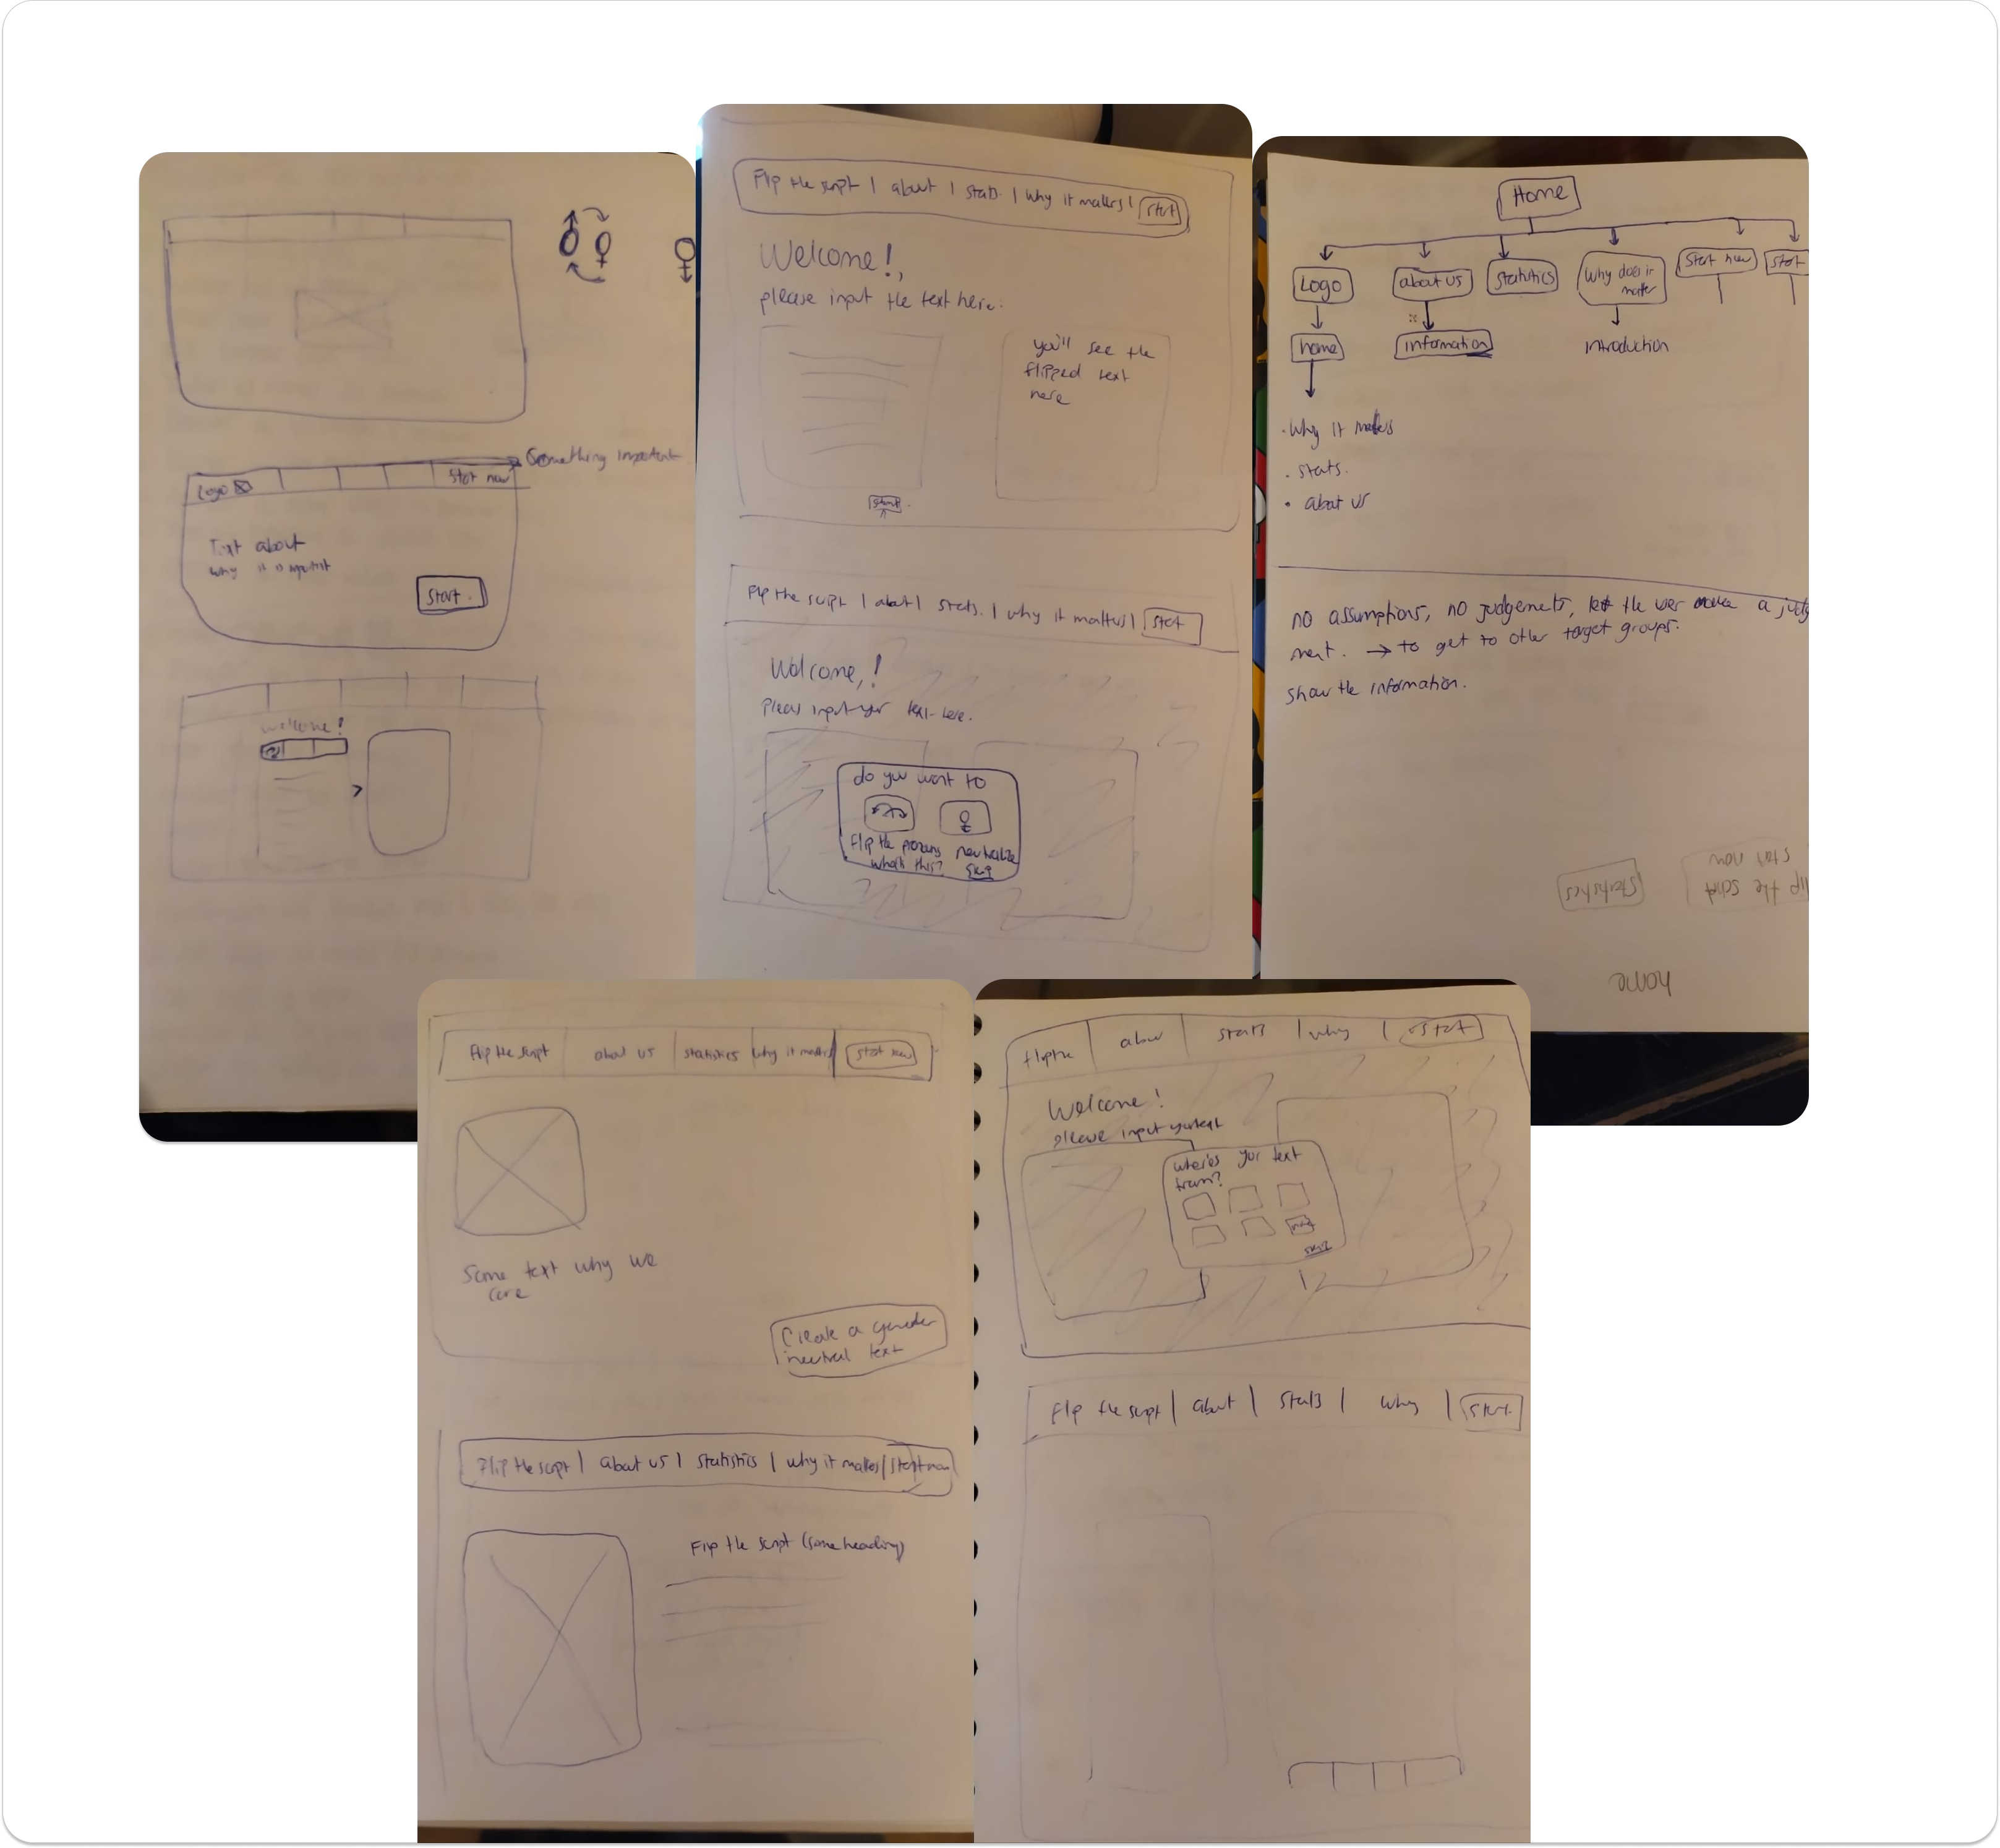 Something important
Logo
Start now
Text about
why it is important
Start
welcome!
Flip the script | about | stats. | why it matters | start
Welcome!,
please input the text here.
you'll see the
flipped text
here
start
Flip the script | about | stats. | why it matters | start
Welcome,!
please input your text here.
do you want to
Flip the neutralize
what's this? skip
Home
Logo
about us
statistics
why does it
matter
Start now
start
home
information
introduction
. why it matters
. stats.
• about us
no assumptions, no judgements, let the user make a judg
ment. → to get to other target groups.
show the information.
start now
flip the script
statistics
home
Flip the script about us statistics why it matters start now
Some text why we
care
Create a gender
neutral text
Flip the script | about us | statistics | why it matters | start now
Flip the script (some heading)
flip the | about | stats | why | start
Welcome!
please input your text
where's your text
from?
skip
Flip the script | about | stats | why | start